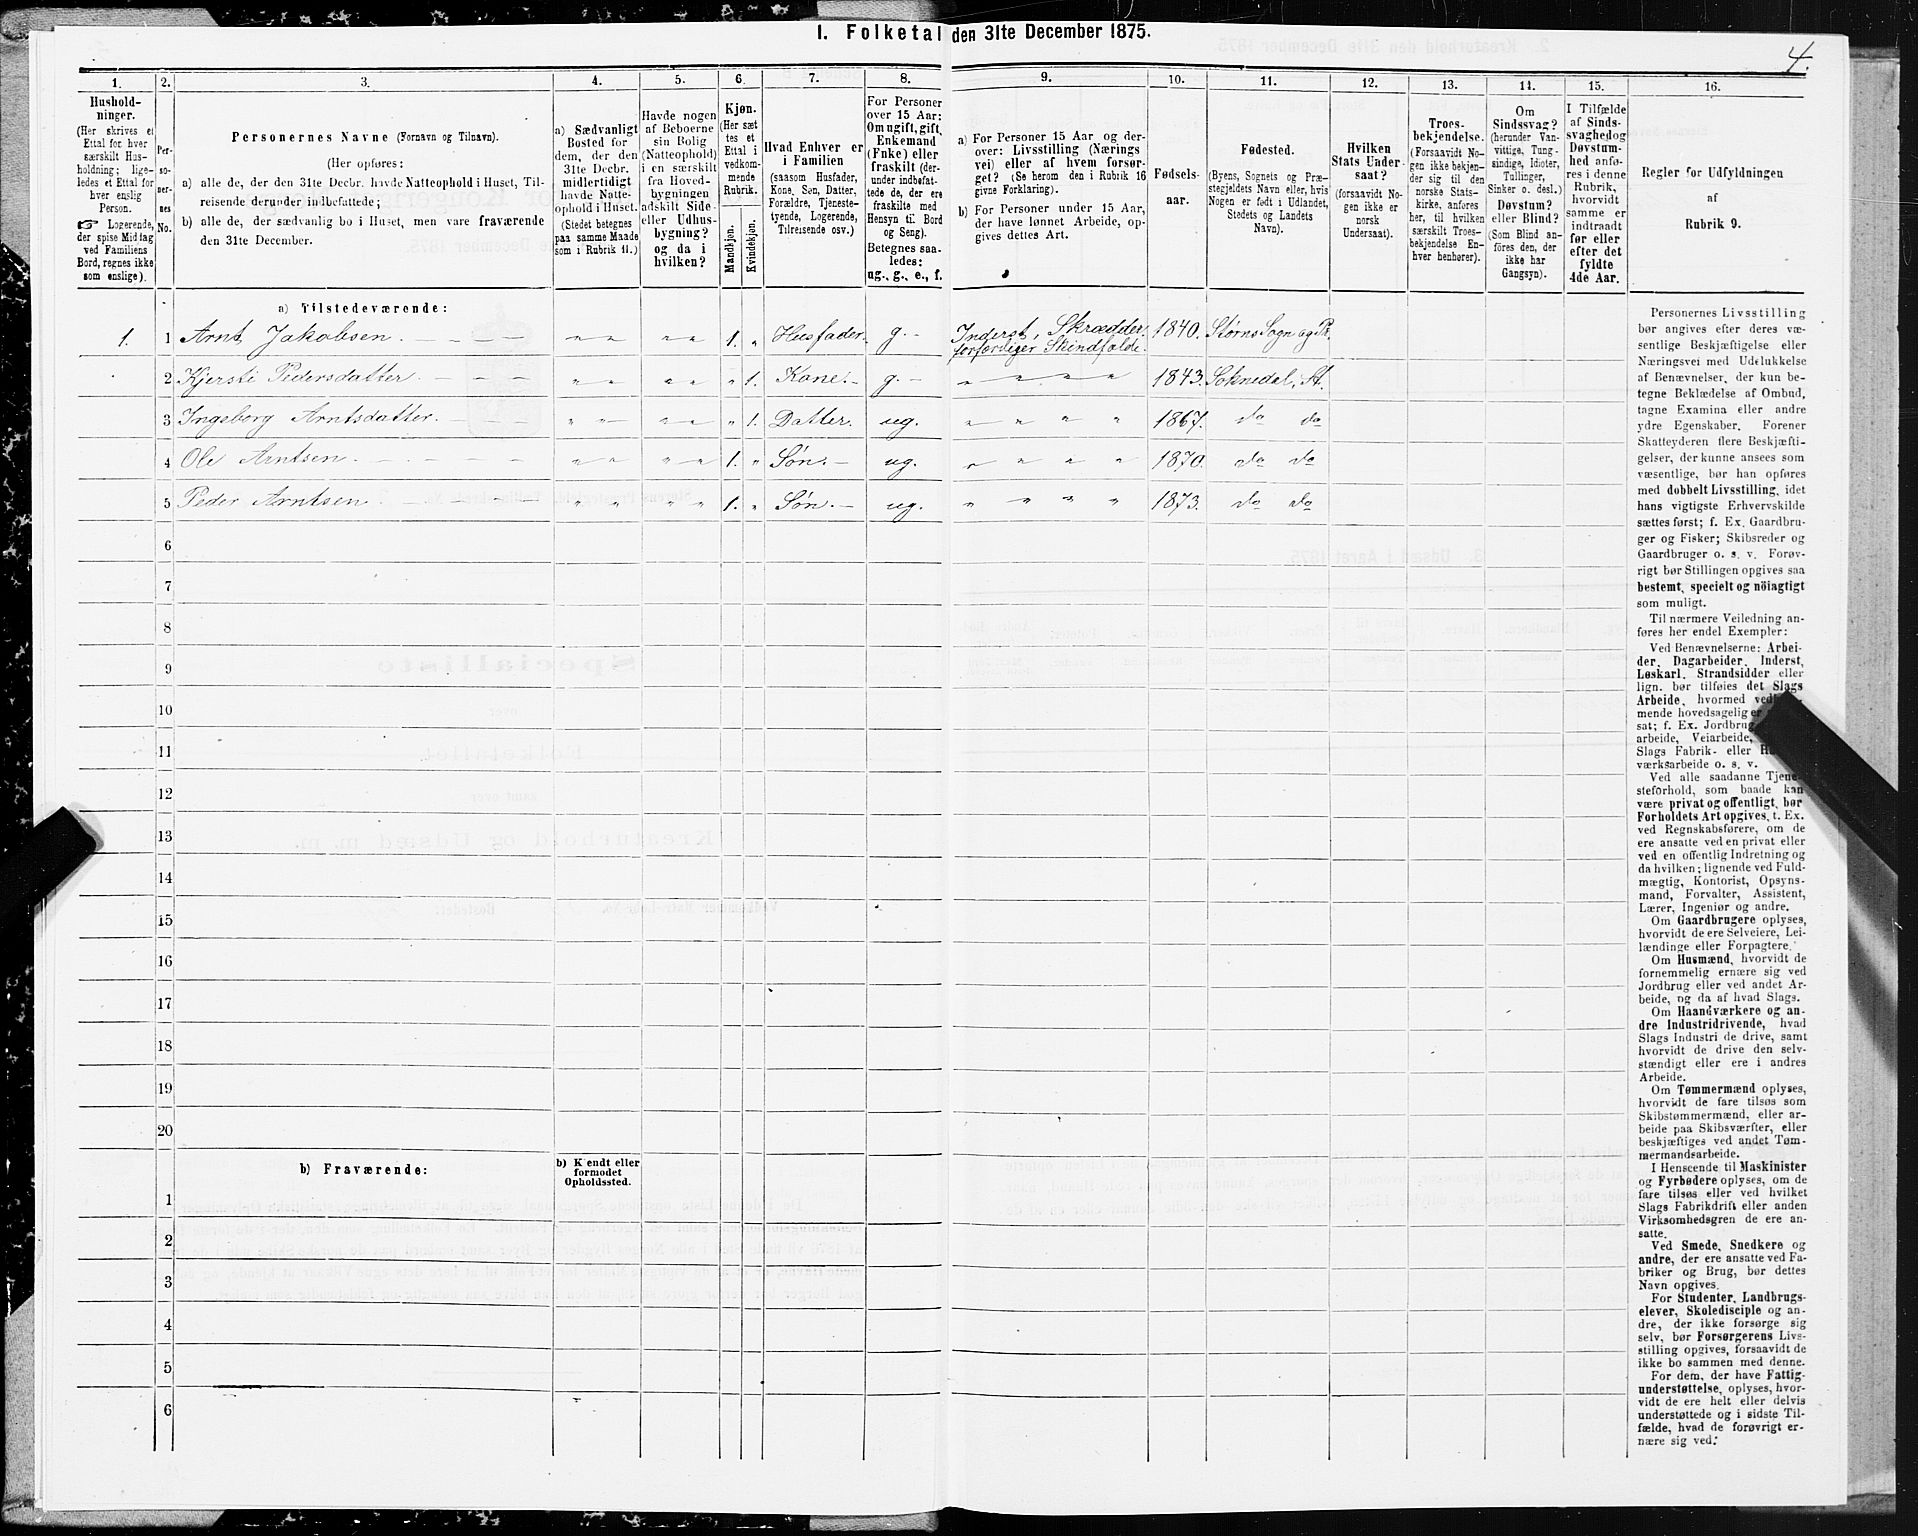 I. Folketal den 31te December 1875.
4.
1.
2.
3.
4.
5.
6.
7.
8.
9.
10.
11.
12.
13.
14.
15.
16.
Hushold-
ninger.
(Her skrives et
Ettal for hver
særskilt Hus-
holdning; lige-
ledes et Ettal for
hver enslig
Person.
Logerende,
der spise Middag
ved Familiens
Bord, regnes ikke
som enslige).
Per-
so-
ner-
nes
No.
Personernes Navne (Fornavn og Tilnavn).
(Her opføres:
a) alle de, der den 31te Decbr. havde Natteophold i Huset, Til-
reisende derunder indbefattede;
b) alle de, der sædvanlig bo i Huset, men vare fraværende
den 31te December.
a) Sædvanligt
Bosted for
dem, der den
31te Decbr.
midlertidigt
havde Natte-
ophold i Huset.
(Stedet betegnes
paa samme Maade
som i Rubrik 11.)
Havde nogen
af Beboerne
sin Bolig
(Natteophold)
i en særskilt
fra Hoved-
bygningen
adskilt Side-
eller Udhus-
bygning?
og da i
hvilken?
Kjøn.
(Her sæt-
tes et
Ettal i
vedkom-
mende
Rubrik.
Mandkjøn.
Kvindekjøn.
Hvad Enhver er
i Familien
(saasom Husfader,
Kone, Søn, Datter,
Forældre, Tjeneste-
tyende, Logerende,
Tilreisende osv.)
For Personer
over 15 Aar:
Om ugift, gift,
Enkemand
(Enke) eller
fraskilt (der-
under indbefat-
tede de, der ere
fraskilte med
Hensyn til Bord
og Seng).
Betegnes saa-
ledes:
ug., g., e., f.
a) For Personer 15 Aar og der-
over: Livsstilling (Nærings-
vei) eller af hvem forsør-
get? (Se herom den i Rubrik 16
givne Forklaring).
b) For Personer under 15 Aar,
der have lønnet Arbeide, op-
gives dettes Art.
Fødsels-
aar.
Fødested.
(Byens, Sognets og Præ-
stegjeldets Navn eller, hvis
Nogen er født i Udlandet,
Stedets og Landets
Navn).
Hvilken
Stats Under-
saat?
(forsaavidt No-
gen ikke er
norsk
Undersaat).
Troes-
bekjendelse.
(Forsaavidt No-
gen ikke bekjen-
der sig til den
norske Stats-
kirke, anføres
her, til hvilken
særskilt Troes-
bekjendelse En-
hver henhører).
Om
Sindssvag?
(herunder Van-
vittige, Tung-
sindige, Idioter,
Tullinger,
Sinker o. desl.)
Døvstum?
eller Blind?
(Som Blind an-
føres den, der
ikke har
Gangsyn).
I Tilfælde
af Sinds-
svaghed og
Døvstum-
hed anfø-
res i denne
Rubrik,
hvorvidt
samme er
indtraadt
før eller
efter det
fyldte
4de Aar.
Regler for Udfyldningen
af
Rubrik 9.
a) Tilstedeværende:
1. 1 Arnt Jakobsen. — — — „ „ „ „ 1. „ Husfader g. — Inderst, Skrædder, 1840. Størns Sogn og Pr.
forfærdiger Skindfælde.
2 Kjersti Pedersdatter. — — — „ „ „ „ „ 1. Kone. — g. — „ „ „ „ 1843. Soknedal, St.
3 Ingeborg Arntsdatter. — — „ „ „ „ „ 1. Datter. ug. „ „ „ „ 1867. do do
4 Ole Arntsen. — — — — „ „ „ „ 1. „ Søn. — ug. „ „ „ „ 1870. do do
5 Peder Arntsen — — — — „ „ „ „ 1. „ Søn. — ug. „ „ „ „ 1873. do do
6
7
8
9
10
11
12
13
14
15
16
17
18
19
20
b) Fraværende:
b) Kjendt eller
formodet
Opholdssted.
1
2
3
4
5
6
Personernes Livsstilling
bør angives efter deres væ-
sentlige Beskjæftigelse eller
Næringsvei med Udelukkelse
af Benævnelser, der kun be-
tegne Beklædelse af Ombud,
tagne Examina eller andre
ydre Egenskaber. Forener
Skatteyderen flere Beskjæfti-
gelser, der kunne ansees som
væsentlige, bør han opføres
med dobbelt Livsstilling, idet
hans vigtigste Erhvervskilde
sættes først; f. Ex. Gaardbru-
ger og Fisker; Skibsreder og
Gaardbruger o. s. v. Forøv-
rigt bør Stillingen opgives saa
bestemt, specielt og nöiagtigt
som muligt.
Til nærmere Veiledning an-
føres her endel Exempler:
Ved Benævnelserne: Arbei-
der, Dagarbeider, Inderst,
Løskarl, Strandsidder eller
lign. bør tilføies det Slags
Arbeide, hvormed
mende hovedsagelig er
sat; f. Ex. Jordbrug
arbeide, Veiarbeide,
Slags Fabrik- eller
værksarbeide o. s. v.
Ved alle saadanne Tjene-
steforhold, som baade kan
være privat og offentligt, bør
Forholdets Art opgives, t. Ex.
ved Regnskabsførere, om de
ere ansatte ved en privat eller
ved en offentlig Indretning og
da hvilken; lignende ved Fuld-
mægtig, Kontorist, Opsyns-
mand, Forvalter, Assistent,
Lærer, Ingeniør og andre.
Om Gaardbrugere oplyses,
hvorvidt de ere Selveiere, Lei-
lændinge eller Forpagtere.
Om Husmænd, hvorvidt de
fornemmelig ernære sig ved
Jordbrug eller ved andet Ar-
beide, og da af hvad Slags.
Om Haandværkere og an-
dre Industridrivende, hvad
Slags Industri de drive, samt
hvorvidt de drive den selv-
stændigt eller ere i andres
Arbeide.
Om Tømmermænd oplyses,
hvorvidt de fare tilsøs som
Skibstømmermænd, eller ar-
beide paa Skibsværfter, eller
beskjæftiges ved andet Tøm-
mermandsarbeide.
I Henseende til Maskinister
og Fyrbødere oplyses, om de
fare tilsøs eller ved hvilket
Slags Fabrikdrift eller anden
Virksomhedsgren de ere an-
satte.
Ved Smede, Snedkere og
andre, der ere ansatte ved Fa-
briker og Brug, bør dettes
Navn opgives.
For Studenter, Landbrugs-
elever, Skoledisciple og an-
dre, der ikke forsørge sig
selv, bør Forsørgerens Livs-
stilling opgives, forsaavidt de
ikke bo sammen med denne.
For dem, der have Fattig-
understøttelse, oplyses, hvor-
vidt de ere helt eller delvis
understøttede og i sidste Til-
fælde, hvad de forøvrigt er-
nære sig ved.